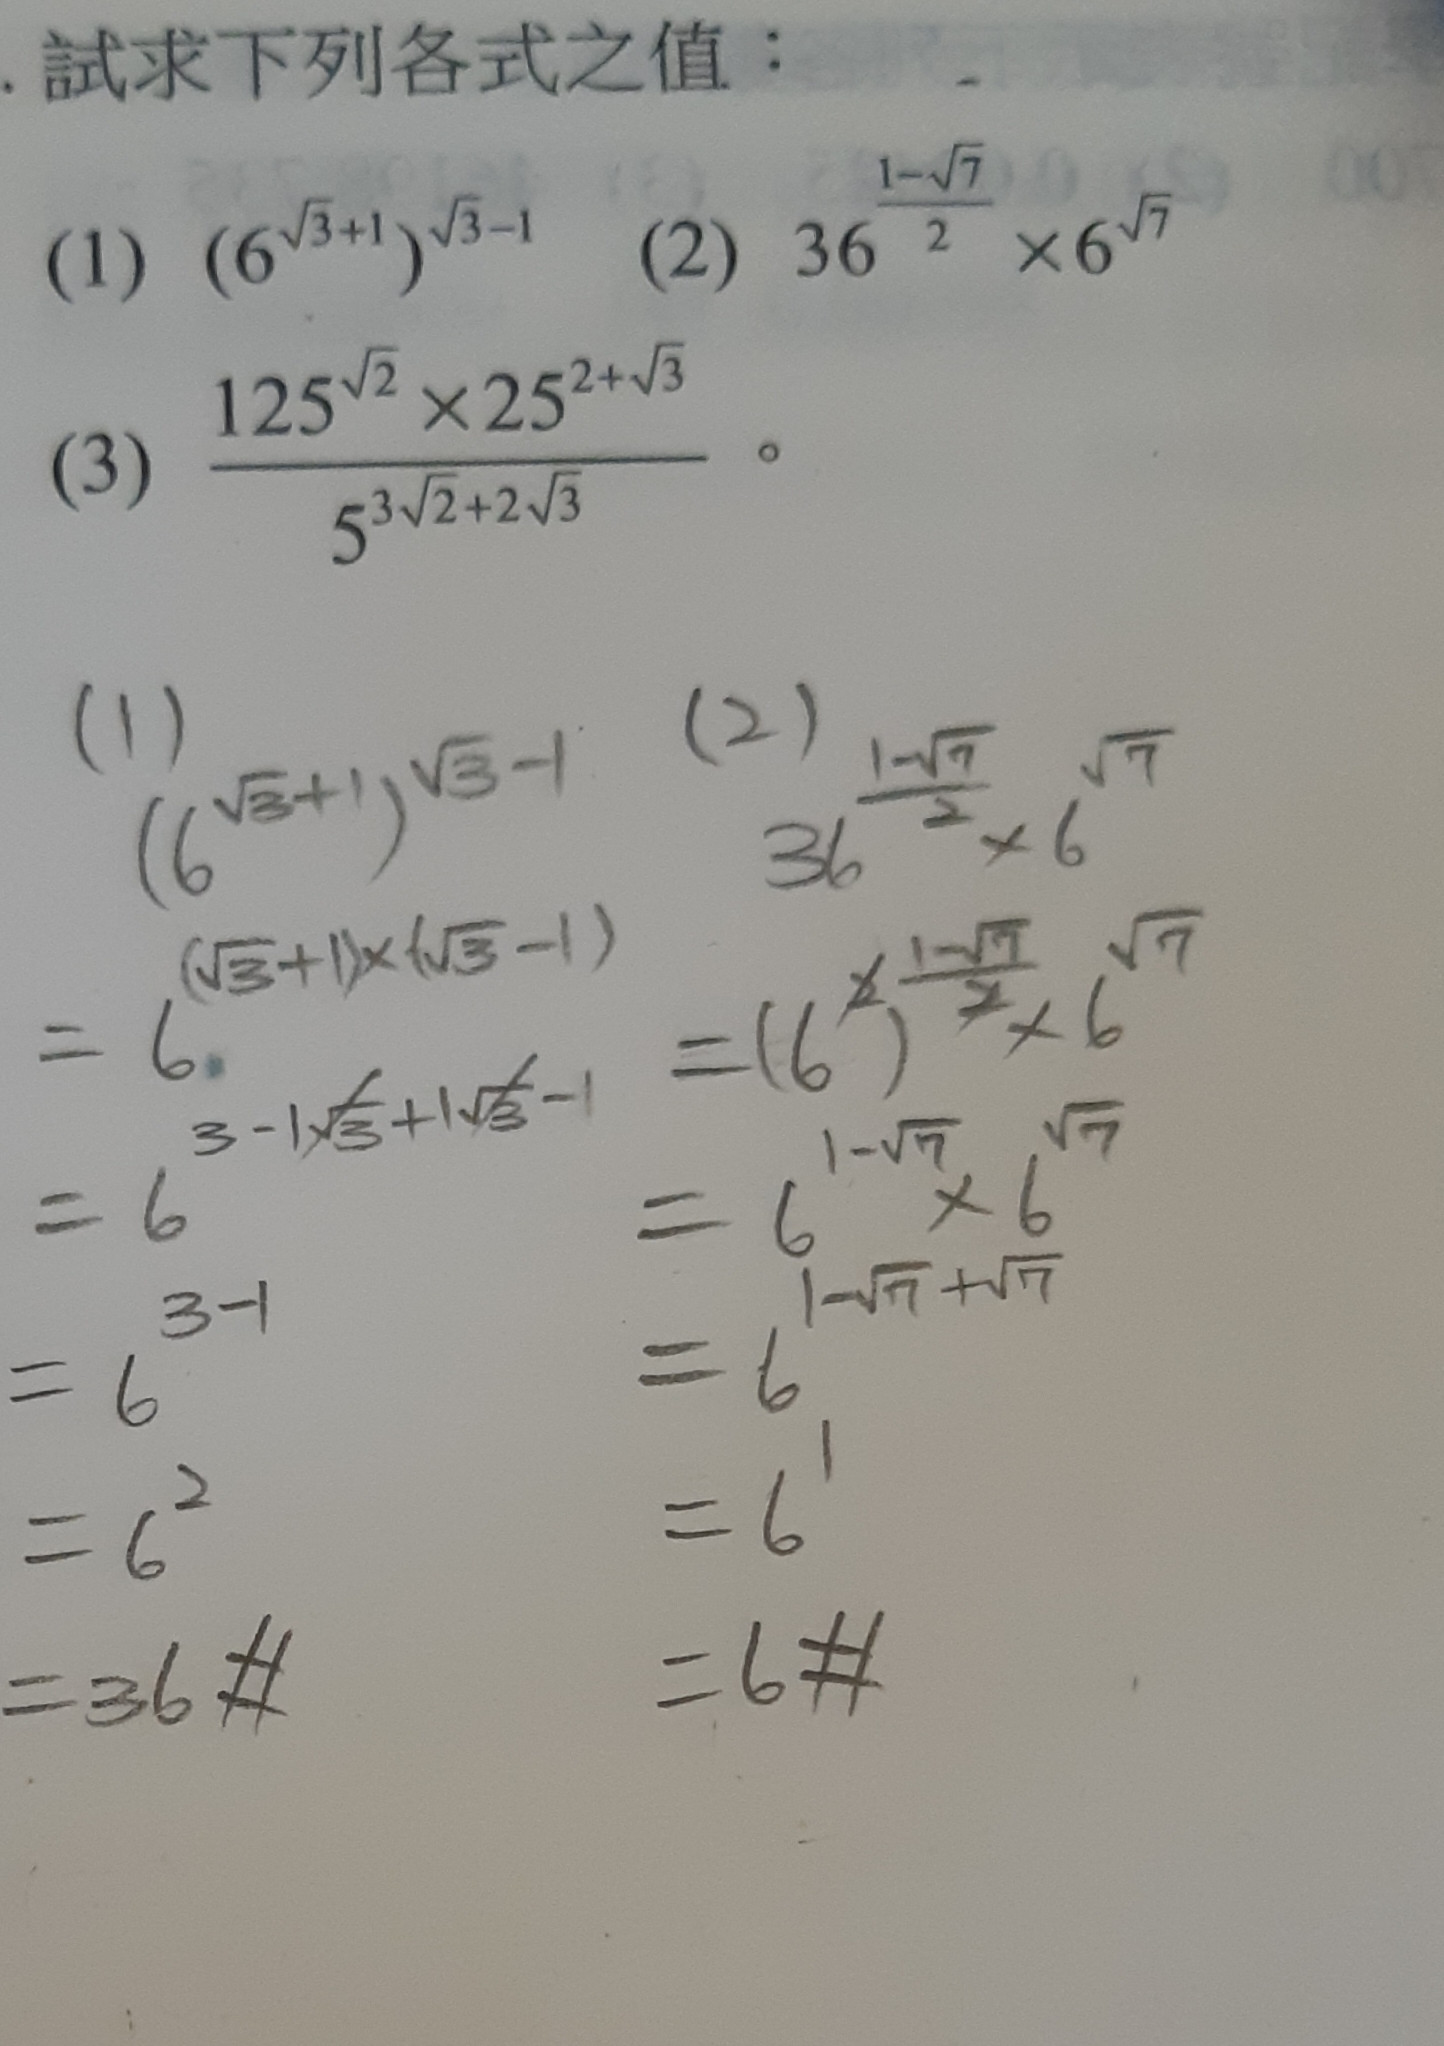 . 試求下列各式之值：
(1) (6^{√3+1})^{√3−1} (2) 36^{\frac{1−√7}{2}} ×6^{√7}
(3) \frac{125^{√2} ×25^{2+√3}}{5^{3√2+2√3}} 。
(1)
(6^{√3+1})^{√3−1}
= 6^{(√3+1)×(√3−1)}
= 6^{3−1√3+1√3−1}
= 6^{3−1}
= 6^2
=36 #
(2)
36^{\frac{1−√7}{2}} × 6^{√7}
=(6^2)^{\frac{1−√7}{2}} × 6^{√7}
= 6^{1−√7} × 6^{√7}
= 6^{1−√7+√7}
= 6^1
=6 #